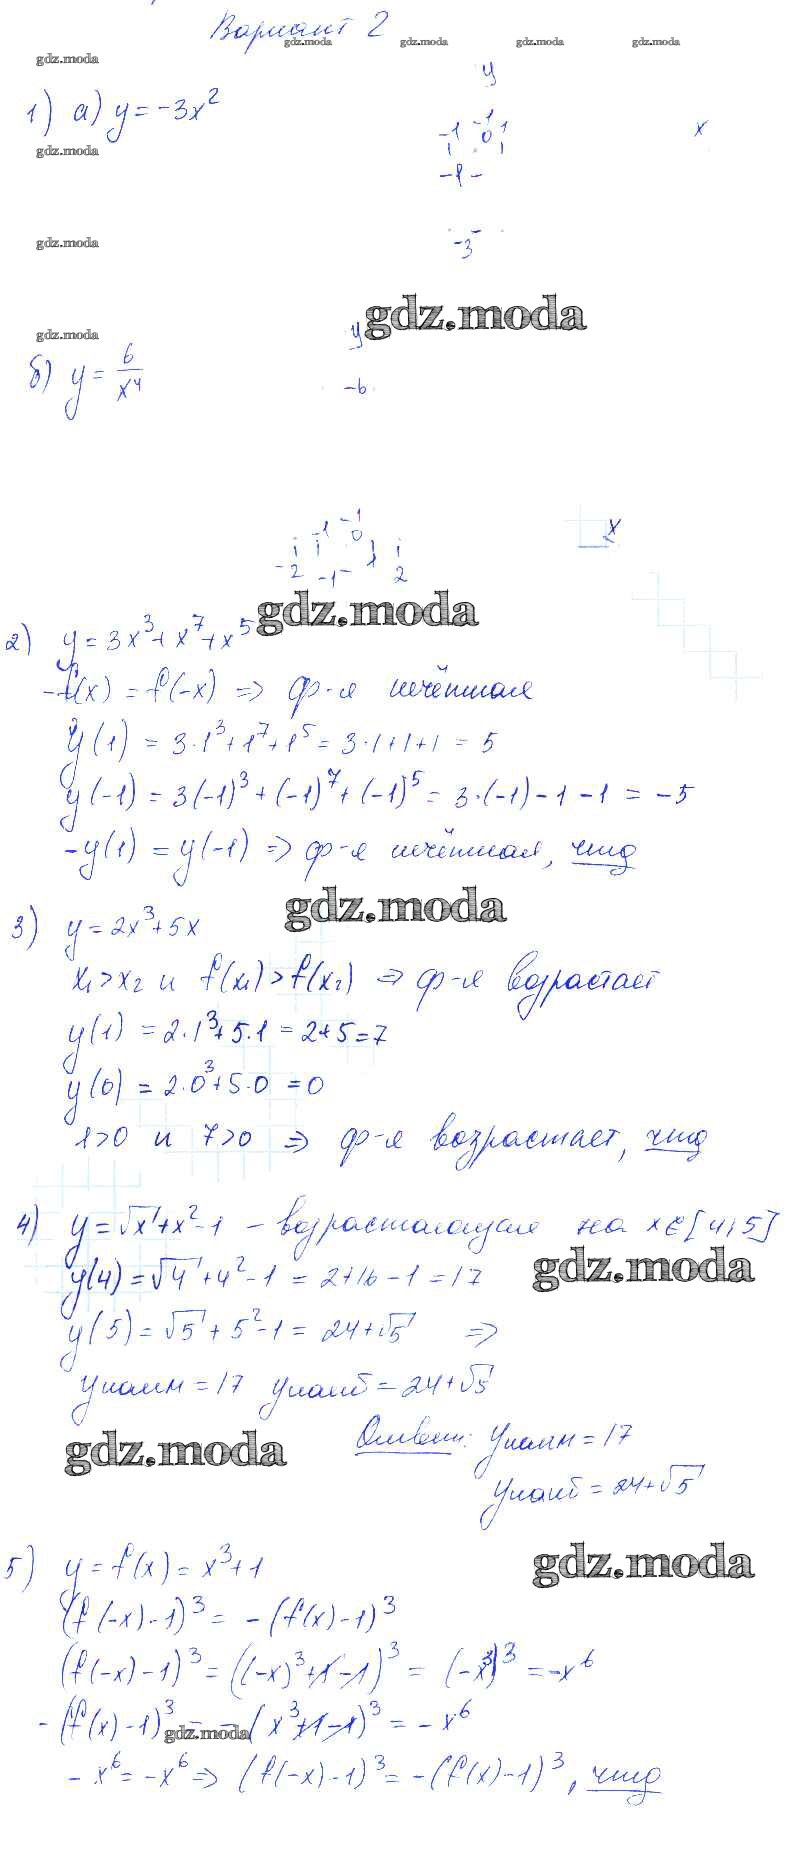 Вариант 2
gdz.moda gdz.moda gdz.moda gdz.moda
gdz.moda
1) а) y = -3x²
y
-1 -1 0 1 x
-1
gdz.moda
gdz.moda
-3
gdz.moda
gdz.moda
б) y = 6/x⁴
y
-6
-2 -1 -1 0 1 2 x
-1
gdz.moda
2) y = 3x³ + x⁷ + x⁵
-f(x) = f(-x) => ф-я нечётная
y(1) = 3·1³ + 1⁷ + 1⁵ = 3·1+1+1 = 5
y(-1) = 3(-1)³ + (-1)⁷ + (-1)⁵ = 3·(-1) - 1 - 1 = -5
-y(1) = y(-1) => ф-я нечётная, чтд
gdz.moda
3) y = 2x³ + 5x
x₁ > x₂ и f(x₁) > f(x₂) => ф-я возрастает
y(1) = 2·1³ + 5·1 = 2+5 = 7
y(0) = 2·0³ + 5·0 = 0
1>0 и 7>0 => ф-я возрастает, чтд
4) y = √x + x² - 1 - возрастающая на x∈[4;5]
gdz.moda
y(4) = √4 + 4² - 1 = 2+16-1 = 17
y(5) = √5 + 5² - 1 = 24+√5 =>
yнаим = 17 yнаиб = 24+√5
gdz.moda
Ответ: yнаим = 17
yнаиб = 24+√5
gdz.moda
5) y = f(x) = x³+1
(f(-x)-1)³ = -(f(x)-1)³
(f(-x)-1)³ = ((-x)³+1-1)³ = (-x³)³ = -x⁶
-(f(x)-1)³ = -(x³+1-1)³ = -x⁶
gdz.moda
-x⁶ = -x⁶ => (f(-x)-1)³ = -(f(x)-1)³, чтд